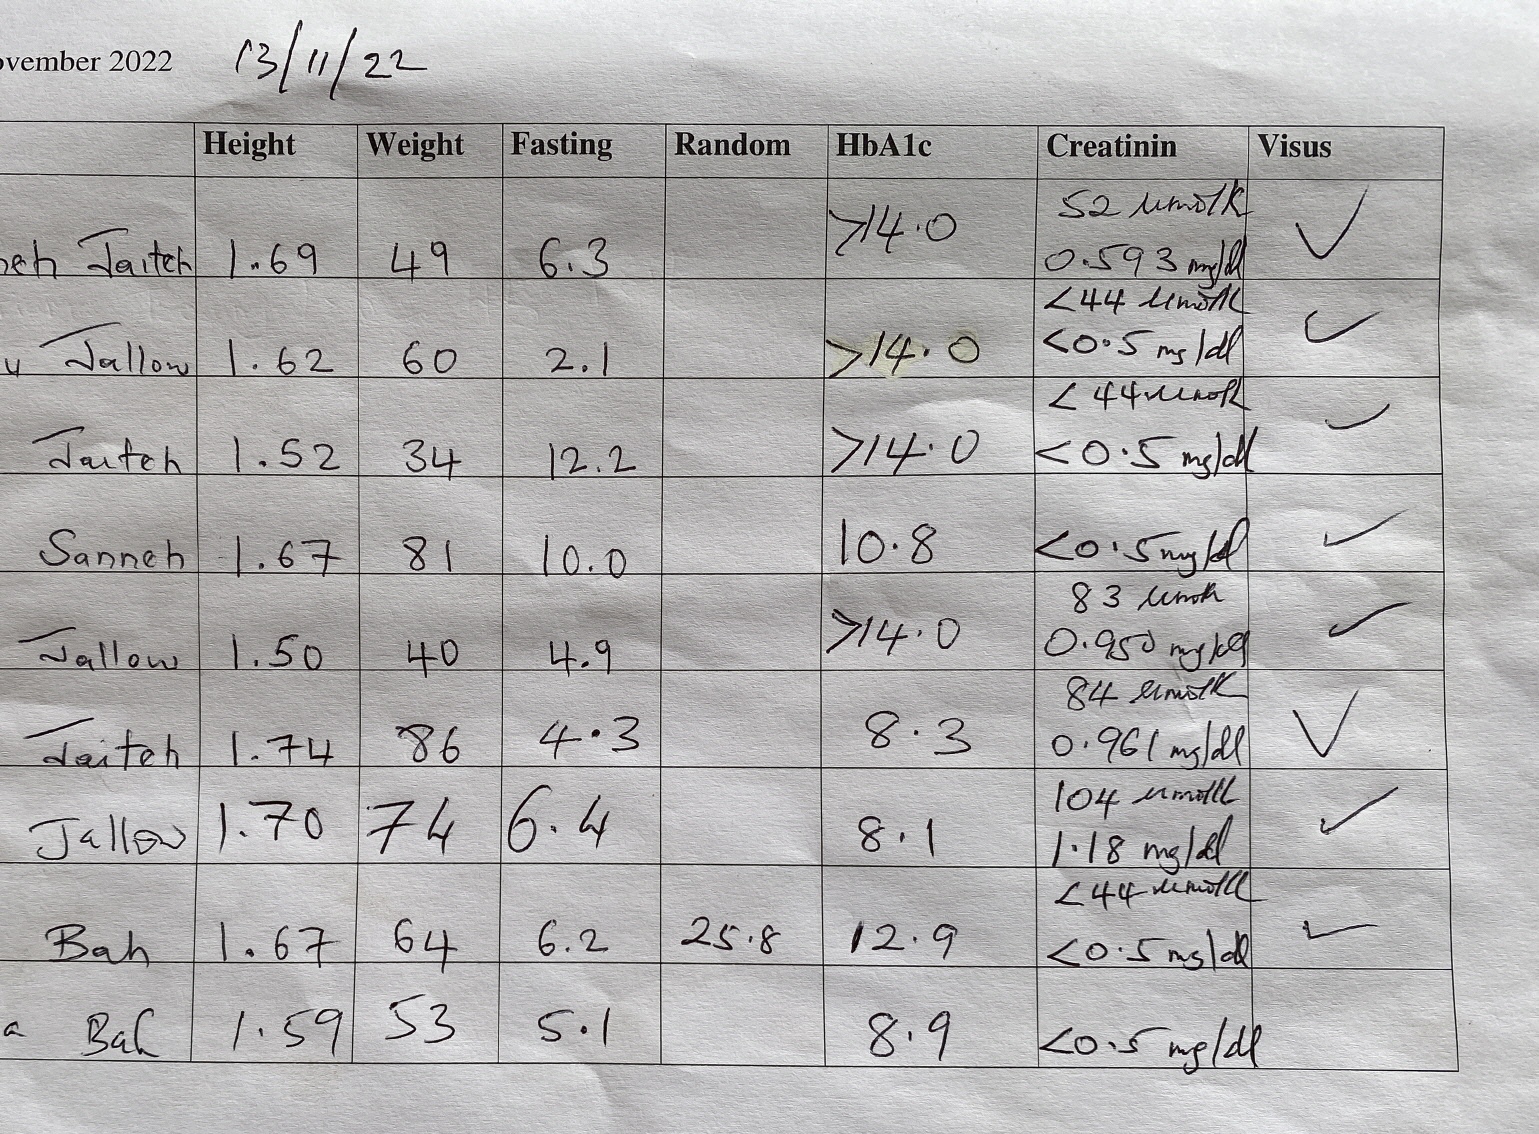 ovember 2022 13/11/22
Height Weight Fasting Random HbA1c Creatinin Visus
52 µmol/L
eh Jaiteh 1.69 49 6.3 >14.0 0.593 mg/dl ✓
<44 µmol/L
y Jallow 1.62 60 2.1 >14.0 <0.5 mg/dl ✓
<44 µmol/L
Jaiteh 1.52 34 12.2 >14.0 <0.5 mg/dl ✓
Sanneh 1.67 81 10.0 10.8 <0.5 mg/dl ✓
83 µmol/L
Jallow 1.50 40 4.9 >14.0 0.950 ✓
84 µmol/L
Jaiteh 1.74 86 4.3 8.3 0.961 mg/dl ✓
104 µmol/L
Jallow 1.70 74 6.4 8.1 1.18 mg/dl ✓
<44 µmol/L
Bah 1.67 64 6.2 25.8 12.9 <0.5 mg/dl ✓
a Bah 1.59 53 5.1 8.9 <0.5 mg/dl